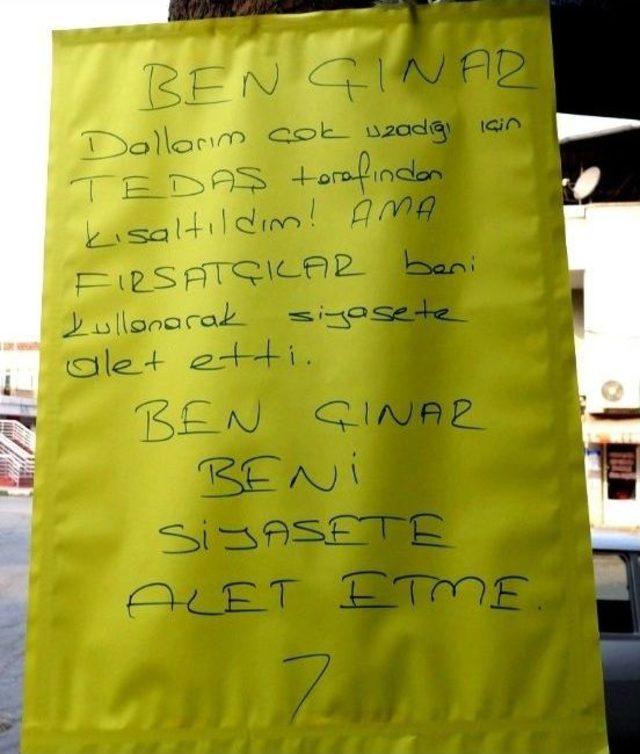 BEN ÇINAR
Dallarım çok uzadığı için
TEDAŞ tarafından
kısaltıldım! AMA
FIRSATÇILAR beni
kullanarak siyasete
alet etti.
BEN ÇINAR
BENİ
SİYASETE
ALET ETME.
7